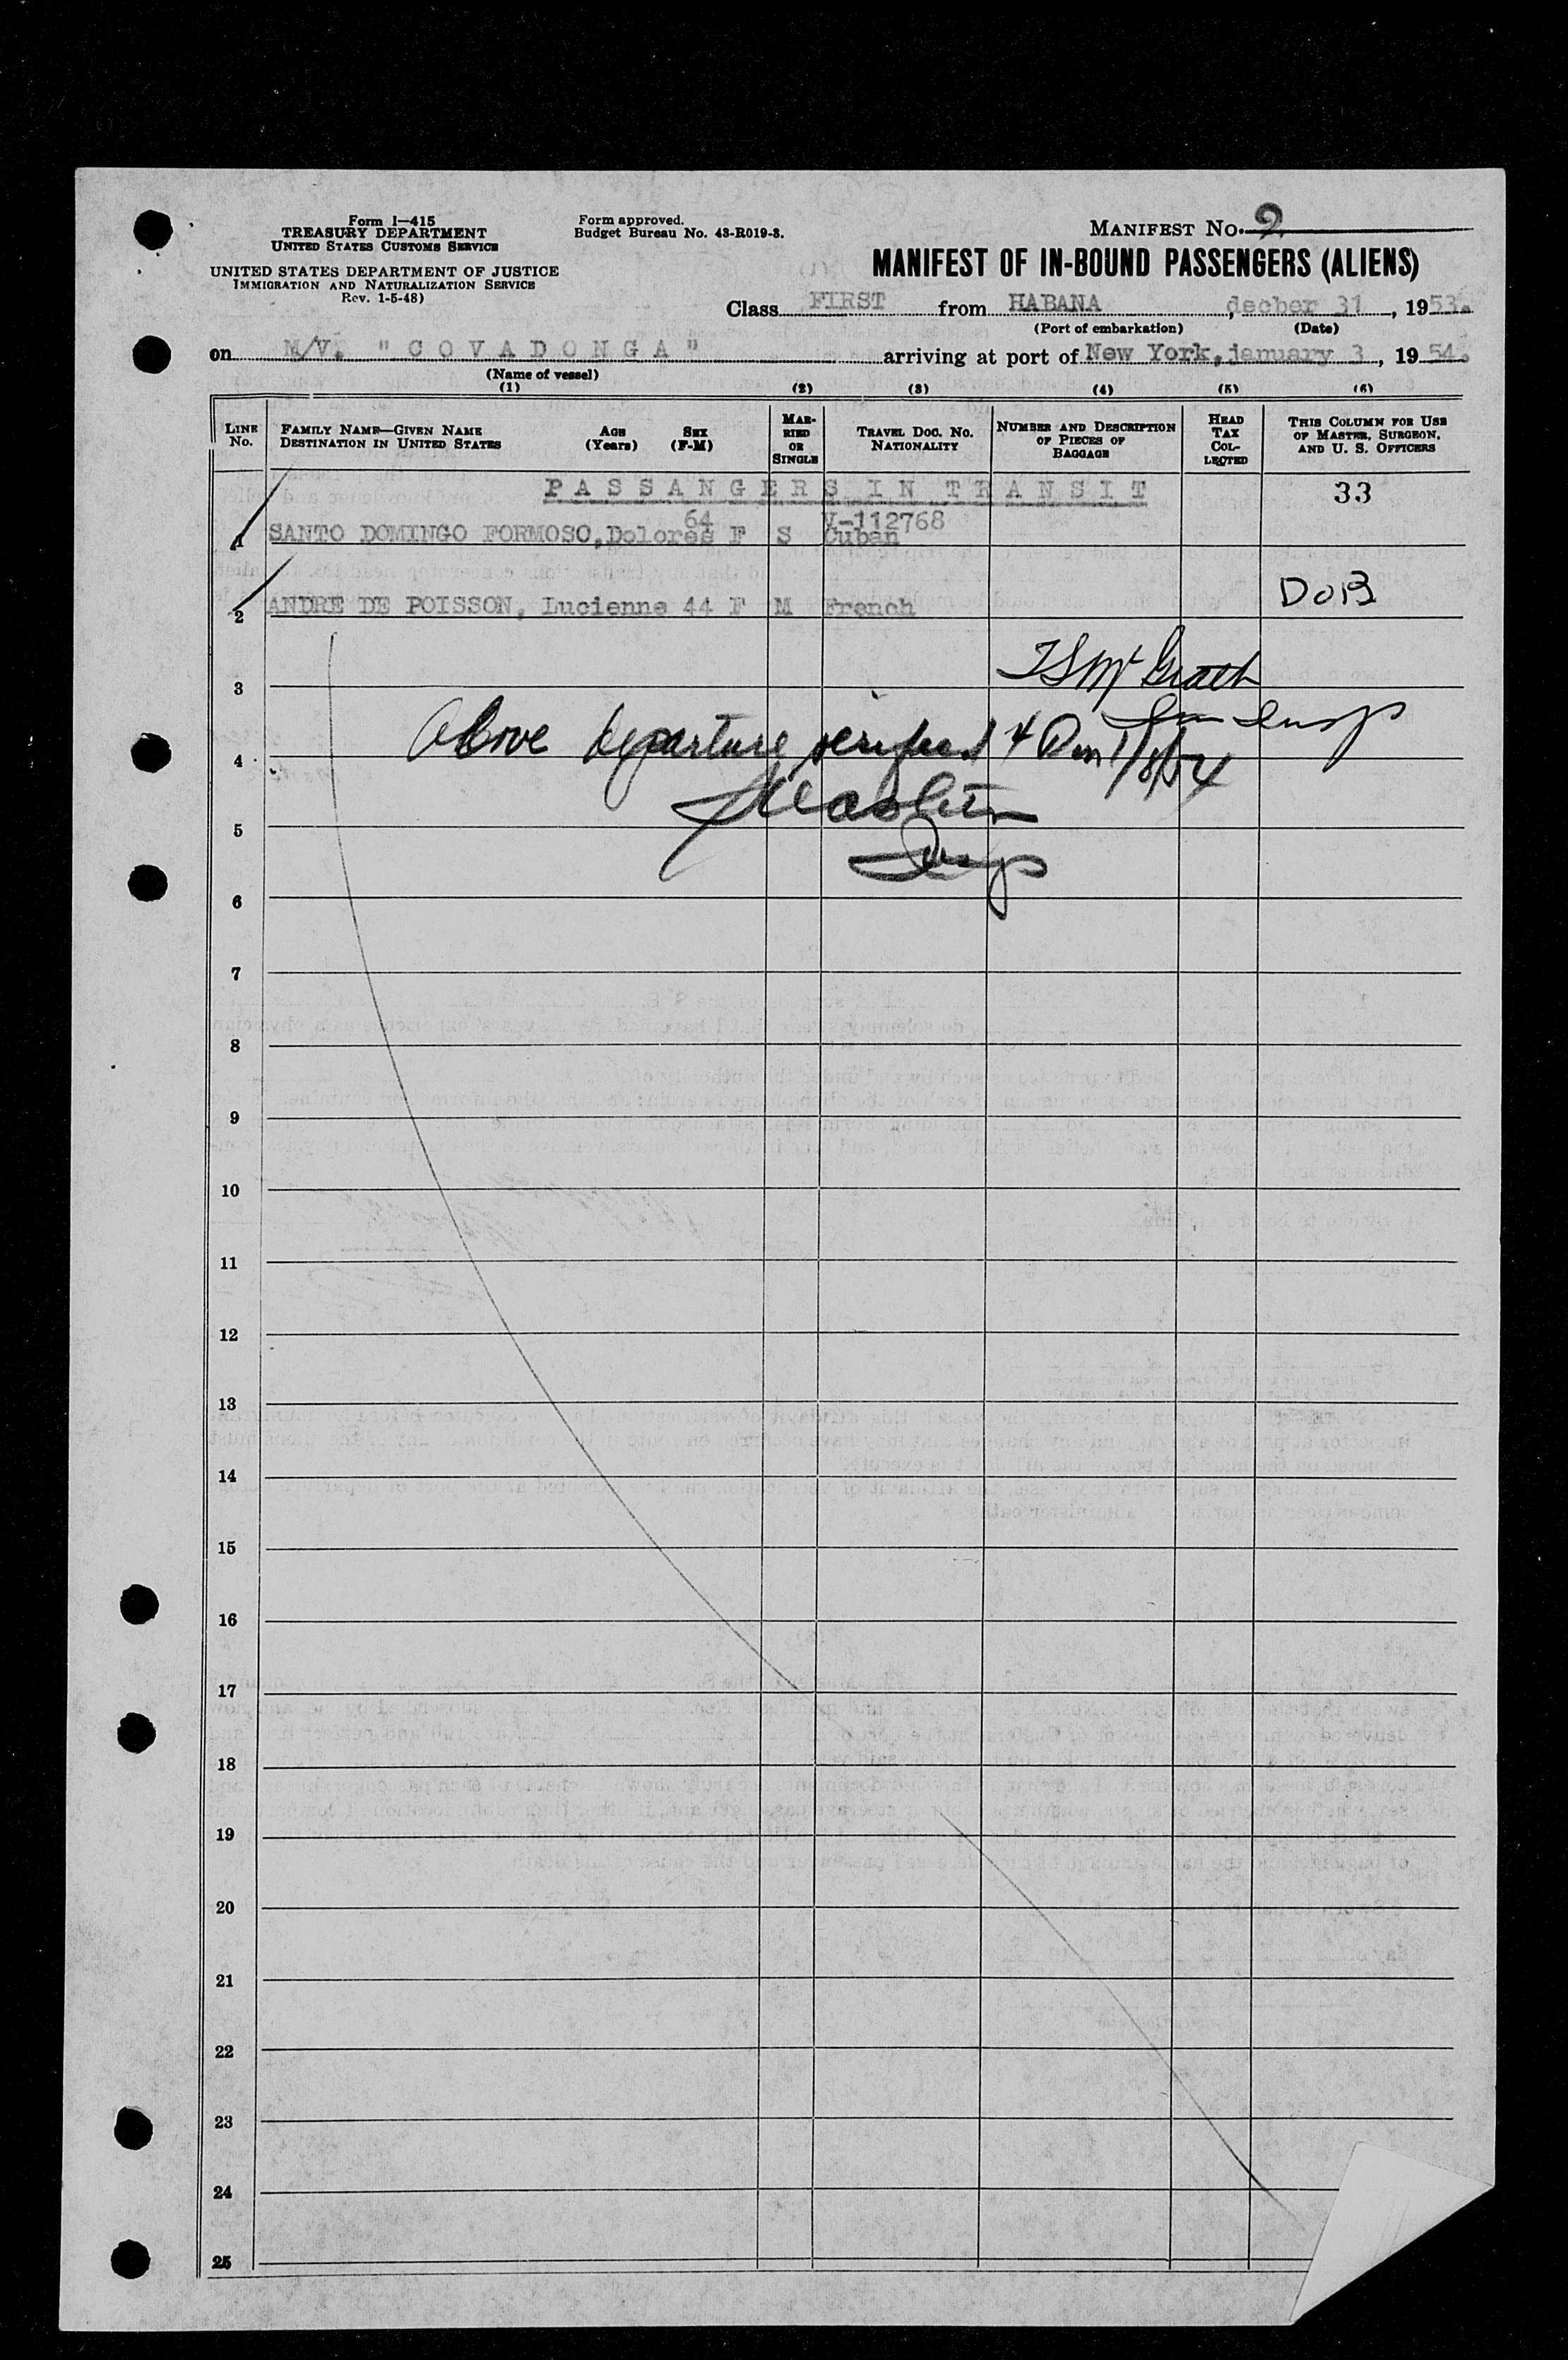 Form I—415
TREASURY DEPARTMENT
UNITED STATES CUSTOMS SERVICE
UNITED STATES DEPARTMENT OF JUSTICE
IMMIGRATION AND NATURALIZATION SERVICE
Rev. 1-5-48)
Form approved.
Budget Bureau No. 43-R019-3.
MANIFEST No. 9
MANIFEST OF IN-BOUND PASSENGERS (ALIENS)
Class FIRST from HABANA, decber 31, 1953.
(Port of embarkation) (Date)
on M/V. "COVADONGA" arriving at port of New York, january 3, 1954.
(Name of vessel)
(1) (2) (3) (4) (5) (6)
LINE No.
FAMILY NAME—GIVEN NAME DESTINATION IN UNITED STATES
AGE (Years)
SEX (F-M)
MARRIED OR SINGLE
TRAVEL DOC. No. NATIONALITY
NUMBER AND DESCRIPTION OF PIECES OF BAGGAGE
HEAD TAX COLLECTED
THIS COLUMN FOR USE OF MASTER, SURGEON, AND U. S. OFFICERS
PASSANGERS IN TRANSIT 33
64 V-112768
1 SANTO DOMINGO FORMOSO, Dolores F S Cuban
DOB
2 ANDRE DE POISSON, Lucienne 44 F M French
McGrath
3
Imm Insp
Above departure verified 1/8/54
4
5
Insp
6
7
8
9
10
11
12
13
14
15
16
17
18
19
20
21
22
23
24
25